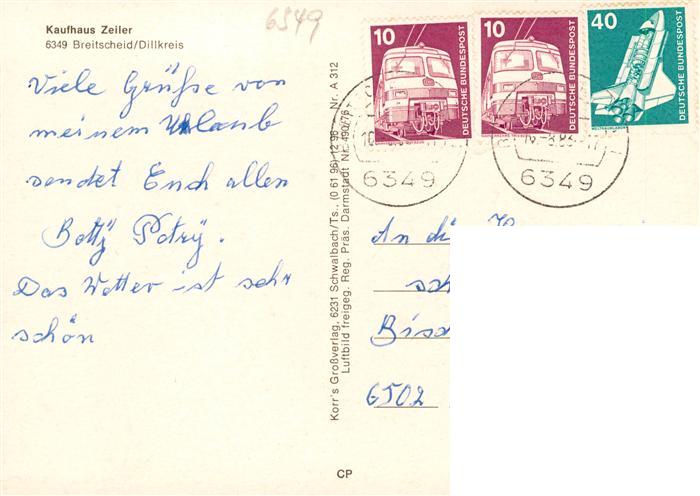 6349
Kaufhaus Zeiler
6349 Breitscheid/Dillkreis
Viele Grüße von
meinem Urlaub
sendet Euch allen
Betty Petry.
Das Wetter ist sehr
schön
Korr's Großverlag, 6231 Schwalbach/Ts., (0 61 96) 12 96 – Nr. A 312
Luftbild freigeg. Reg. Präs. Darmstadt Nr. 490/76
CP
10
DEUTSCHE BUNDESPOST
10
DEUTSCHE BUNDESPOST
40
DEUTSCHE BUNDESPOST
6349
6349
An di
sch
Bisc
6502